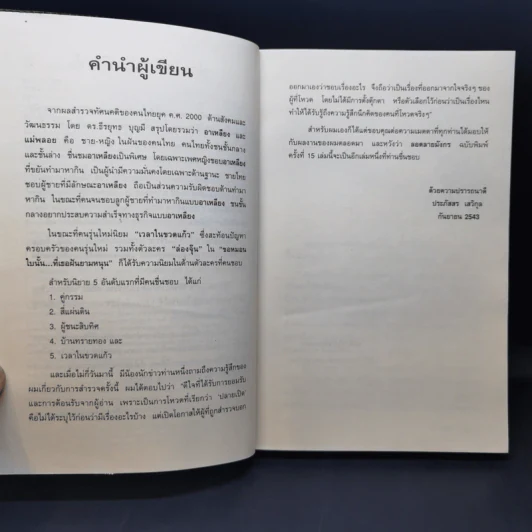 คำนำผู้เขียน
จากผลสำรวจทัศนคติของคนไทยยุค ค.ศ. 2000 ด้านสังคมและ
วัฒนธรรม โดย ดร.ธีรยุทธ บุญมี สรุปโดยรวมว่า อาเหลียง และ
แม่พลอย คือ ชาย-หญิง ในฝันของคนไทย คนไทยทั้งชนชั้นกลาง
และชั้นล่าง ชื่นชมอาเหลียงเป็นพิเศษ โดยเฉพาะเพศหญิงชอบอาเหลียง
ที่ขยันทำมาหากิน เป็นผู้นำมีความมั่นคงโดยเฉพาะด้านฐานะ ชายไทย
ชอบผู้ชายที่มีลักษณะอาเหลียง ถือเป็นส่วนความรับผิดชอบด้านทำมา
หากิน ในขณะที่คนจนชอบลูกผู้ชายที่ทำมาหากินแบบอาเหลียง ชนชั้น
กลางอยากประสบความสำเร็จทางธุรกิจแบบอาเหลียง
ในขณะที่คนรุ่นใหม่นิยม "เวลาในขวดแก้ว" ซึ่งสะท้อนปัญหา
ครอบครัวของคนรุ่นใหม่ รวมทั้งตัวละคร "ล่องจุ้น" ใน "ขอหมอน
ใบนั้น...ที่เธอฝันยามหนุน" ก็ได้รับความนิยมในด้านตัวละครที่คนชอบ
สำหรับนิยาย 5 อันดับแรกที่มีคนชื่นชอบ ได้แก่
1. คู่กรรม
2. สี่แผ่นดิน
3. ผู้ชนะสิบทิศ
4. บ้านทรายทอง และ
5. เวลาในขวดแก้ว
และเมื่อไม่กี่วันมานี้ มีน้องนักข่าวท่านหนึ่งถามถึงความรู้สึกของ
ผมเกี่ยวกับการสำรวจครั้งนี้ ผมได้ตอบไปว่า "ดีใจที่ได้รับการยอมรับ
และการต้อนรับจากผู้อ่าน เพราะเป็นการโหวตที่เรียกว่า 'ปลายเปิด'
คือไม่ได้ระบุไว้ก่อนว่ามีเรื่องอะไรบ้าง แต่เปิดโอกาสให้ผู้ที่ถูกสำรวจบอก
ออกมาเองว่าชอบเรื่องอะไร จึงถือว่าเป็นเรื่องที่ออกมาจากใจจริงๆ ของ
ผู้ที่โหวต โดยไม่ได้มีการตั้งตุ๊กตา หรือตัวเลือกไว้ก่อนว่าเป็นเรื่องไหน
ทำให้ได้รับรู้ถึงความรู้สึกนึกคิดของคนที่โหวตจริงๆ"
สำหรับผมเองก็ได้แต่ขอบคุณต่อความเมตตาที่ทุกท่านได้มอบให้
กับผลงานของผมตลอดมา และหวังว่า ลอดลายมังกร ฉบับพิมพ์
ครั้งที่ 15 เล่มนี้จะเป็นอีกเล่มหนึ่งที่ท่านชื่นชอบ
ด้วยความปรารถนาดี
ประภัสสร เสวิกุล
กันยายน 2543